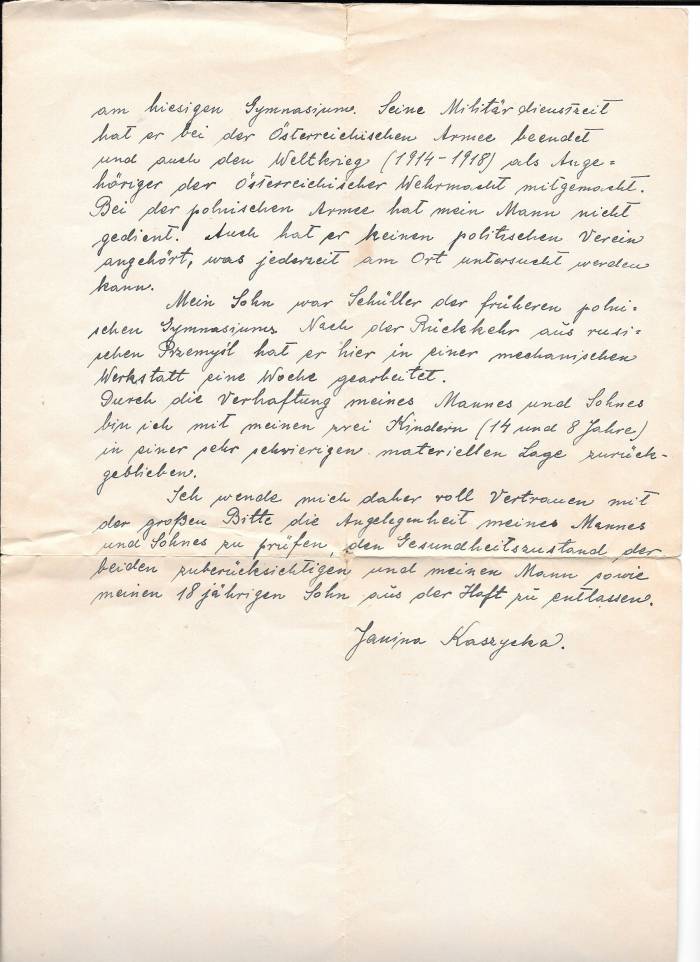 am hiesigen Gymnasium. Seine Militärdienstzeit
hat er bei der Österreichischen Armee beendet
und auch den Weltkrieg (1914-1918) als Ange=
höriger der Österreichischer Wehrmacht mitgemacht.
Bei der polnischen Armee hat mein Mann nicht
gedient. Auch hat er keinen politschen Verein
angehört, was jederzeit am Ort untersucht werden
kann.
Mein Sohn war Schüller der früheren polni=
schen Gymnasiums. Nach der Rückkehr aus russi=
schen Przemyśl hat er hier in einer mechanischen
Werkstatt eine Woche gearbeitet.
Durch die Verhaftung meines Mannes und Sohnes
bin ich mit meinen zwei Kindern (14 und 8 Jahre)
in einer sehr schwierigen materiellen Lage zurück-
geblieben.
Ich wende mich daher voll Vertrauen mit
der großen Bitte die Angelegenheit meines Mannes
und Sohnes zu prüfen, den Gesundheitszustand der
beiden zuberücksichtigen und meinen Mann sowie
meinen 18 jährigen Sohn aus der Haft zu entlassen.
Janina Kaszycka.